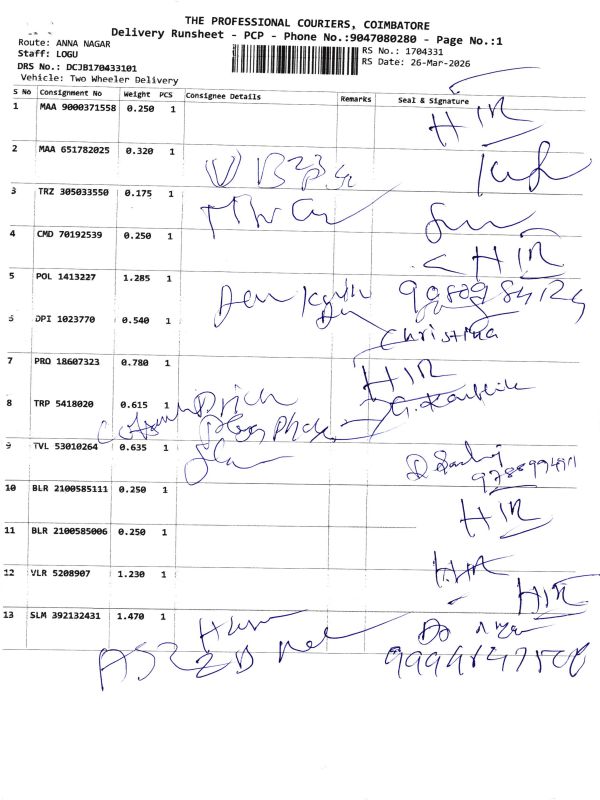 THE PROFESSIONAL COURIERS, COIMBATORE
Delivery Runsheet - PCP - Phone No.:9047080280 - Page No.:1
Route: ANNA NAGAR
RS No.: 1704331
Staff: LOGU
RS Date: 26-Mar-2026
DRS No.: DCJB170433101
Vehicle: Two Wheeler Delivery
S No Consignment No Weight PCS Consignee Details Remarks Seal & Signature
1 MAA 9000371558 0.250 1 HIR
2 MAA 651782025 0.320 1
3 TRZ 305033550 0.175 1
4 CMD 70192539 0.250 1 HIR
5 POL 1413227 1.285 1
6 DPI 1023770 0.540 1 Christina
7 PRO 18607323 0.780 1 HIR
8 TRP 5418020 0.615 1 G. Karthik
9 TVL 53010264 0.635 1
10 BLR 2100585111 0.250 1 HIR
11 BLR 2100585006 0.250 1 HIR
12 VLR 5208907 1.230 1 HIR
13 SLM 392132431 1.470 1